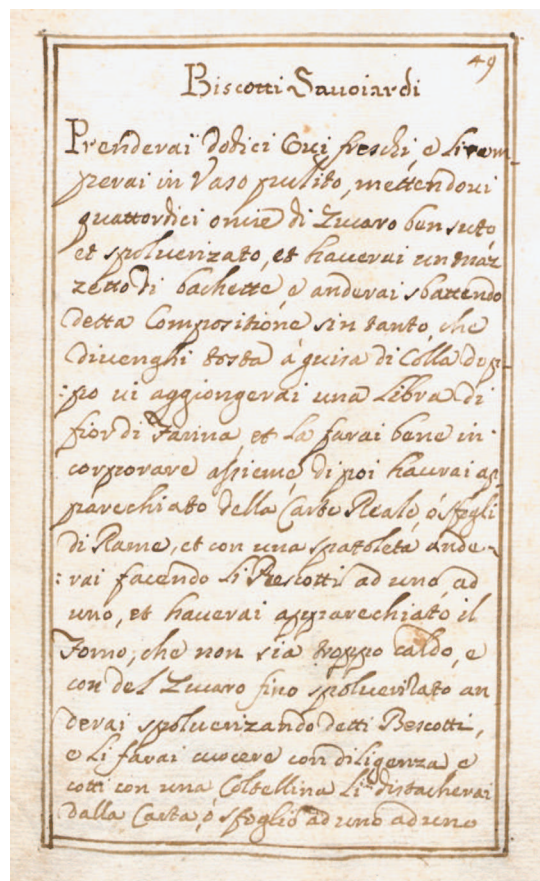 49
Biscotti Savoiardi
Prenderai dodici Ovi freschi, e li rom-
perai in Vaso pulito, mettendovi
quattordici oncie di Zucaro ben suto
et spolverizato, et haverai un maz
zetto di bachette, e anderai sbattendo
detta Compositione sin tanto, che
divenghi tosta à guisa di Colla dop-
:po vi aggiongerai una Libra di
fior di Farina, et la farai bene in
corporare assieme, di poi haverai ap
parechiato della Carta Reale, ó sfogli
di Rame, et con una spatoleta ande-
:rai facendo li Bescotti ad uno, ad
uno, et haverai apparechiato il
Forno, che non sia troppo caldo, e
con del Zucaro fino spolverizato an
derai spolverizando detti Bescotti,
e li farai cuocere con diligenza e
cotti con una Coltellina li distacherai
dalla Carta, ó sfoglio ad uno ad uno